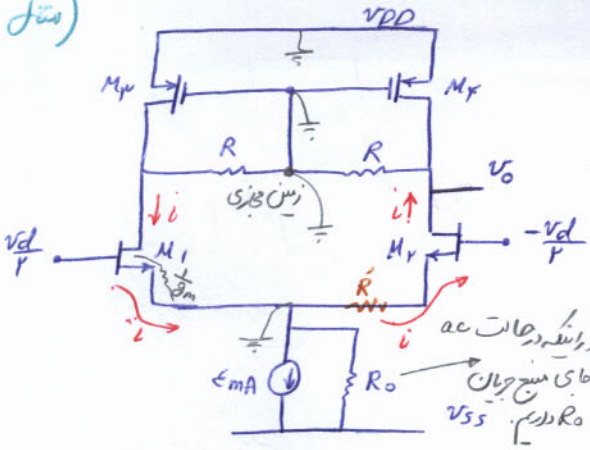 مثال)
VDD
M۳
M۴
R
R
زمین مجازی
Vo
i
i
Vd/۲
M۱
1/gm
M۲
-Vd/۲
i
R'
i
۴mA
Ro
در حالت ac
جای منبع جریان
Ro داریم.
VSS